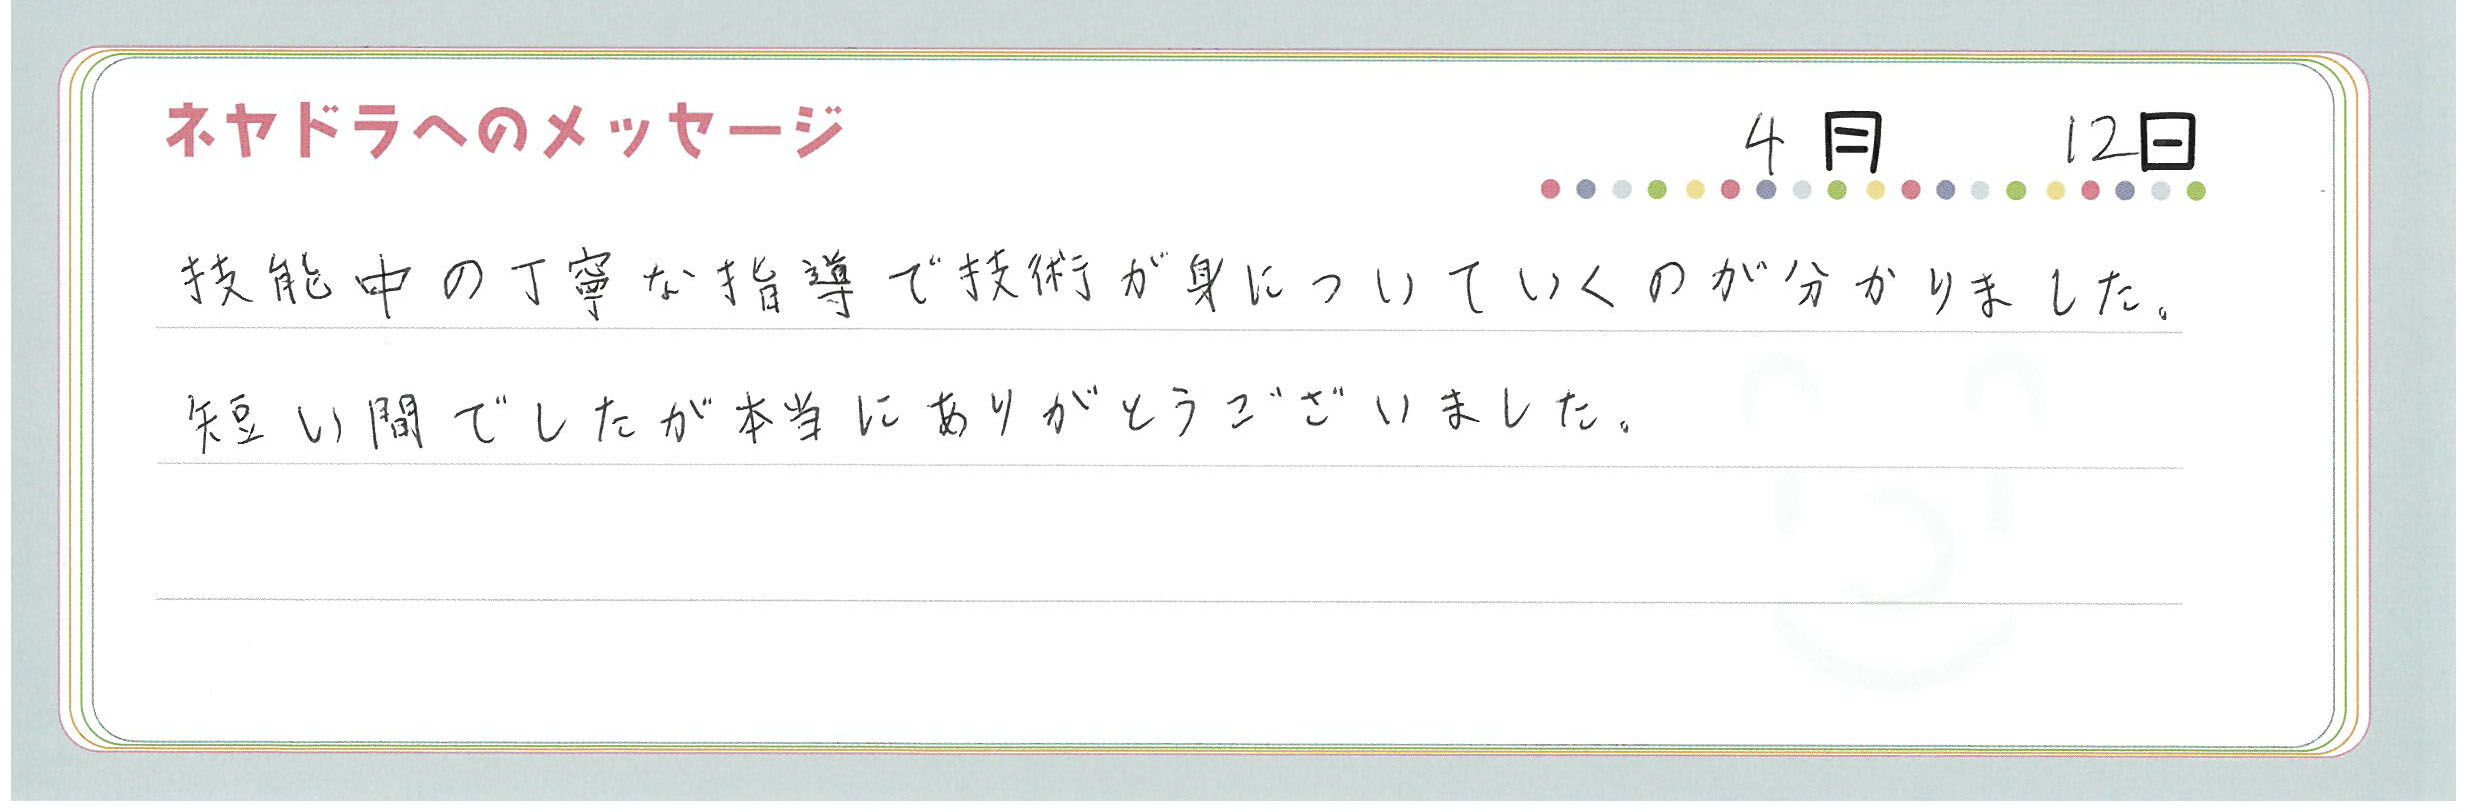 ネヤドラへのメッセージ
4月 12日
技能中の丁寧な指導で技術が身についていくのが分かりました。
短い間でしたが本当にありがとうございました。